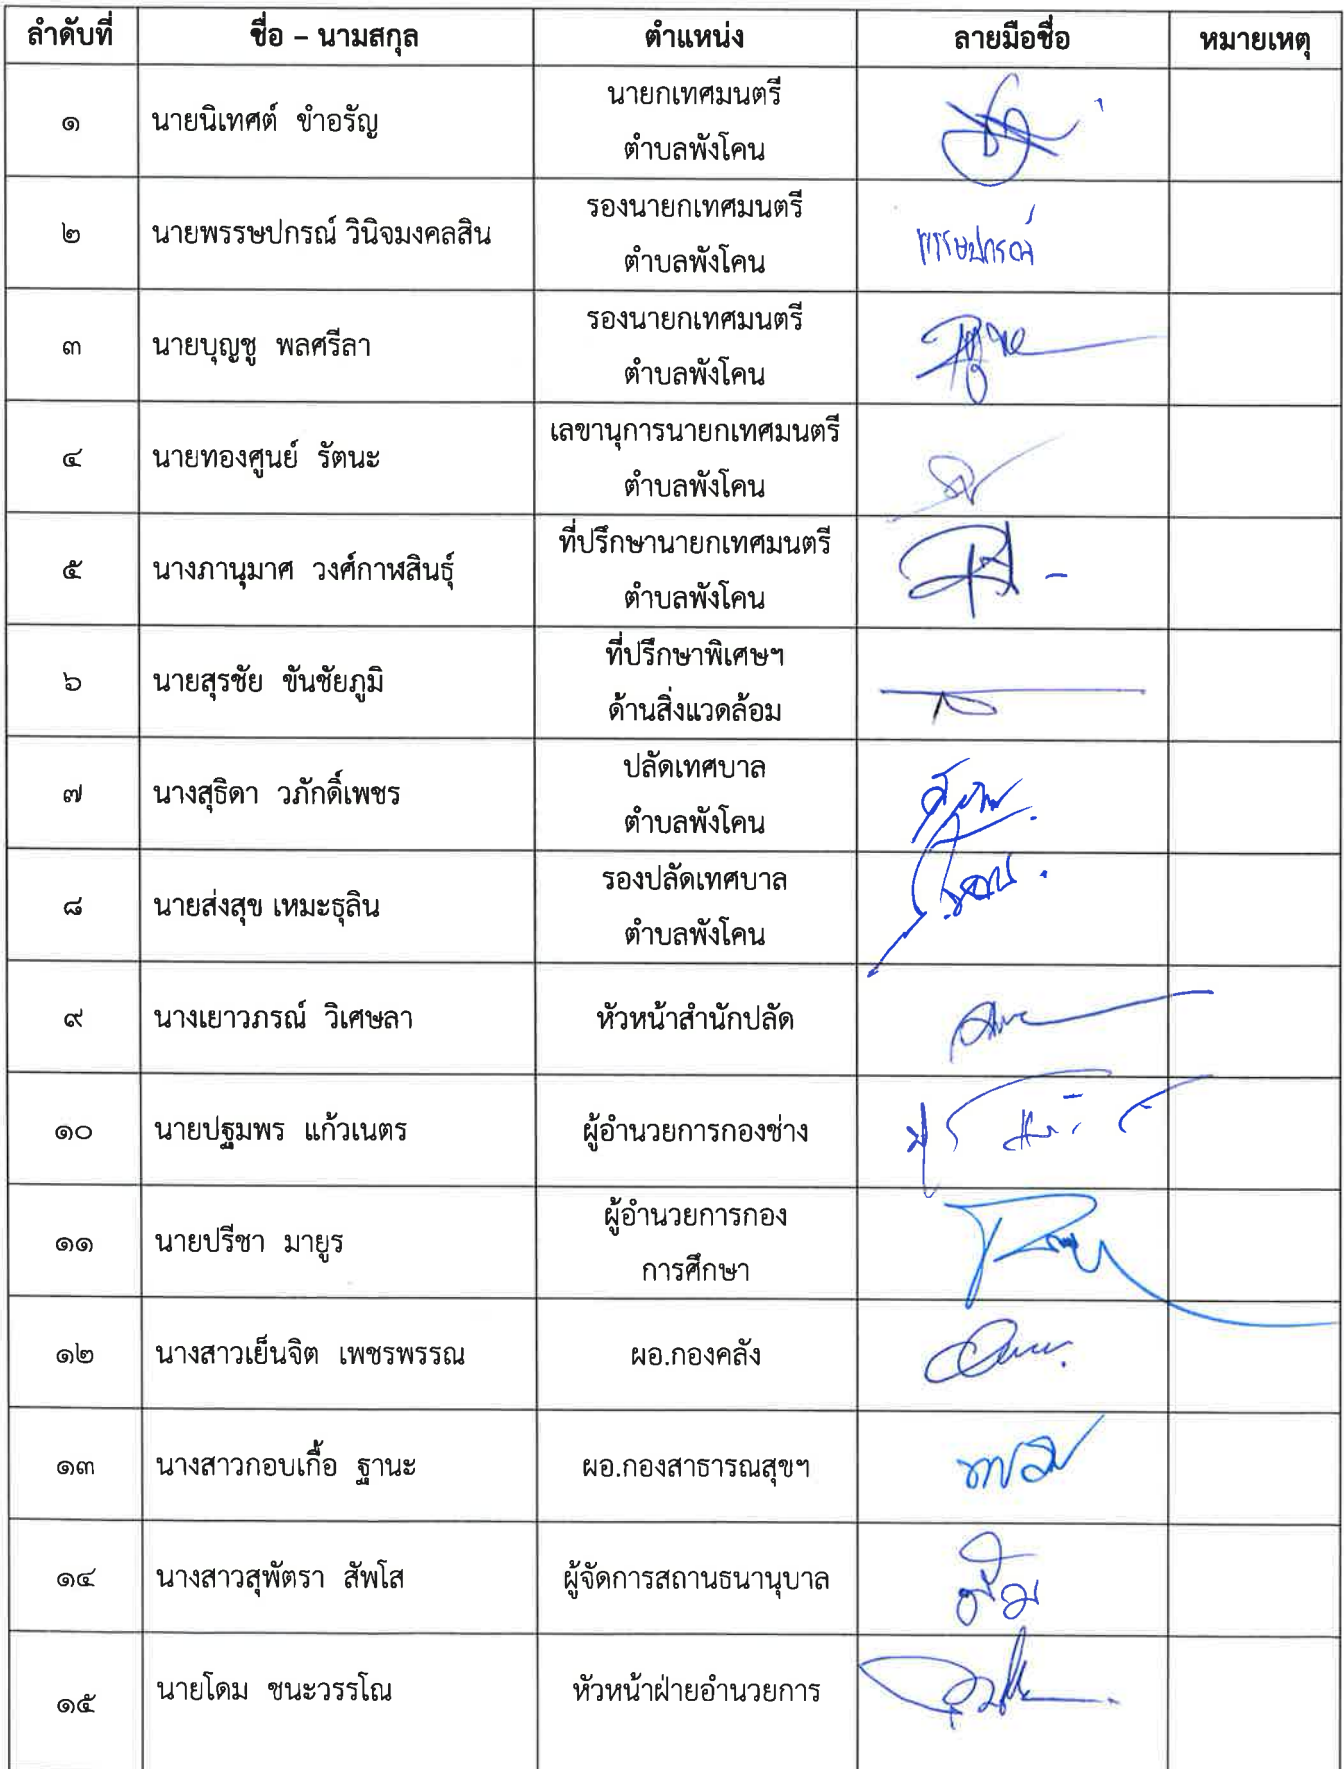 ลำดับที่ ชื่อ – นามสกุล ตำแหน่ง ลายมือชื่อ หมายเหตุ
๑ นายนิเทศต์ ขำอรัญ นายกเทศมนตรี
ตำบลพังโคน
๒ นายพรรษปกรณ์ วินิจมงคลสิน รองนายกเทศมนตรี
ตำบลพังโคน พรรษปกรณ์
๓ นายบุญชู พลศรีลา รองนายกเทศมนตรี
ตำบลพังโคน
๔ นายทองศูนย์ รัตนะ เลขานุการนายกเทศมนตรี
ตำบลพังโคน
๕ นางภานุมาศ วงศ์กาฬสินธุ์ ที่ปรึกษานายกเทศมนตรี
ตำบลพังโคน
๖ นายสุรชัย ขันชัยภูมิ ที่ปรึกษาพิเศษฯ
ด้านสิ่งแวดล้อม
๗ นางสุธิดา วภักดิ์เพชร ปลัดเทศบาล
ตำบลพังโคน
๘ นายส่งสุข เหมะธุลิน รองปลัดเทศบาล
ตำบลพังโคน
๙ นางเยาวภรณ์ วิเศษลา หัวหน้าสำนักปลัด
๑๐ นายปฐมพร แก้วเนตร ผู้อำนวยการกองช่าง
๑๑ นายปรีชา มายูร ผู้อำนวยการกอง
การศึกษา
๑๒ นางสาวเย็นจิต เพชรพรรณ ผอ.กองคลัง
๑๓ นางสาวกอบเกื้อ ฐานะ ผอ.กองสาธารณสุขฯ
๑๔ นางสาวสุพัตรา สัพโส ผู้จัดการสถานธนานุบาล
๑๕ นายโดม ชนะวรรโณ หัวหน้าฝ่ายอำนวยการ